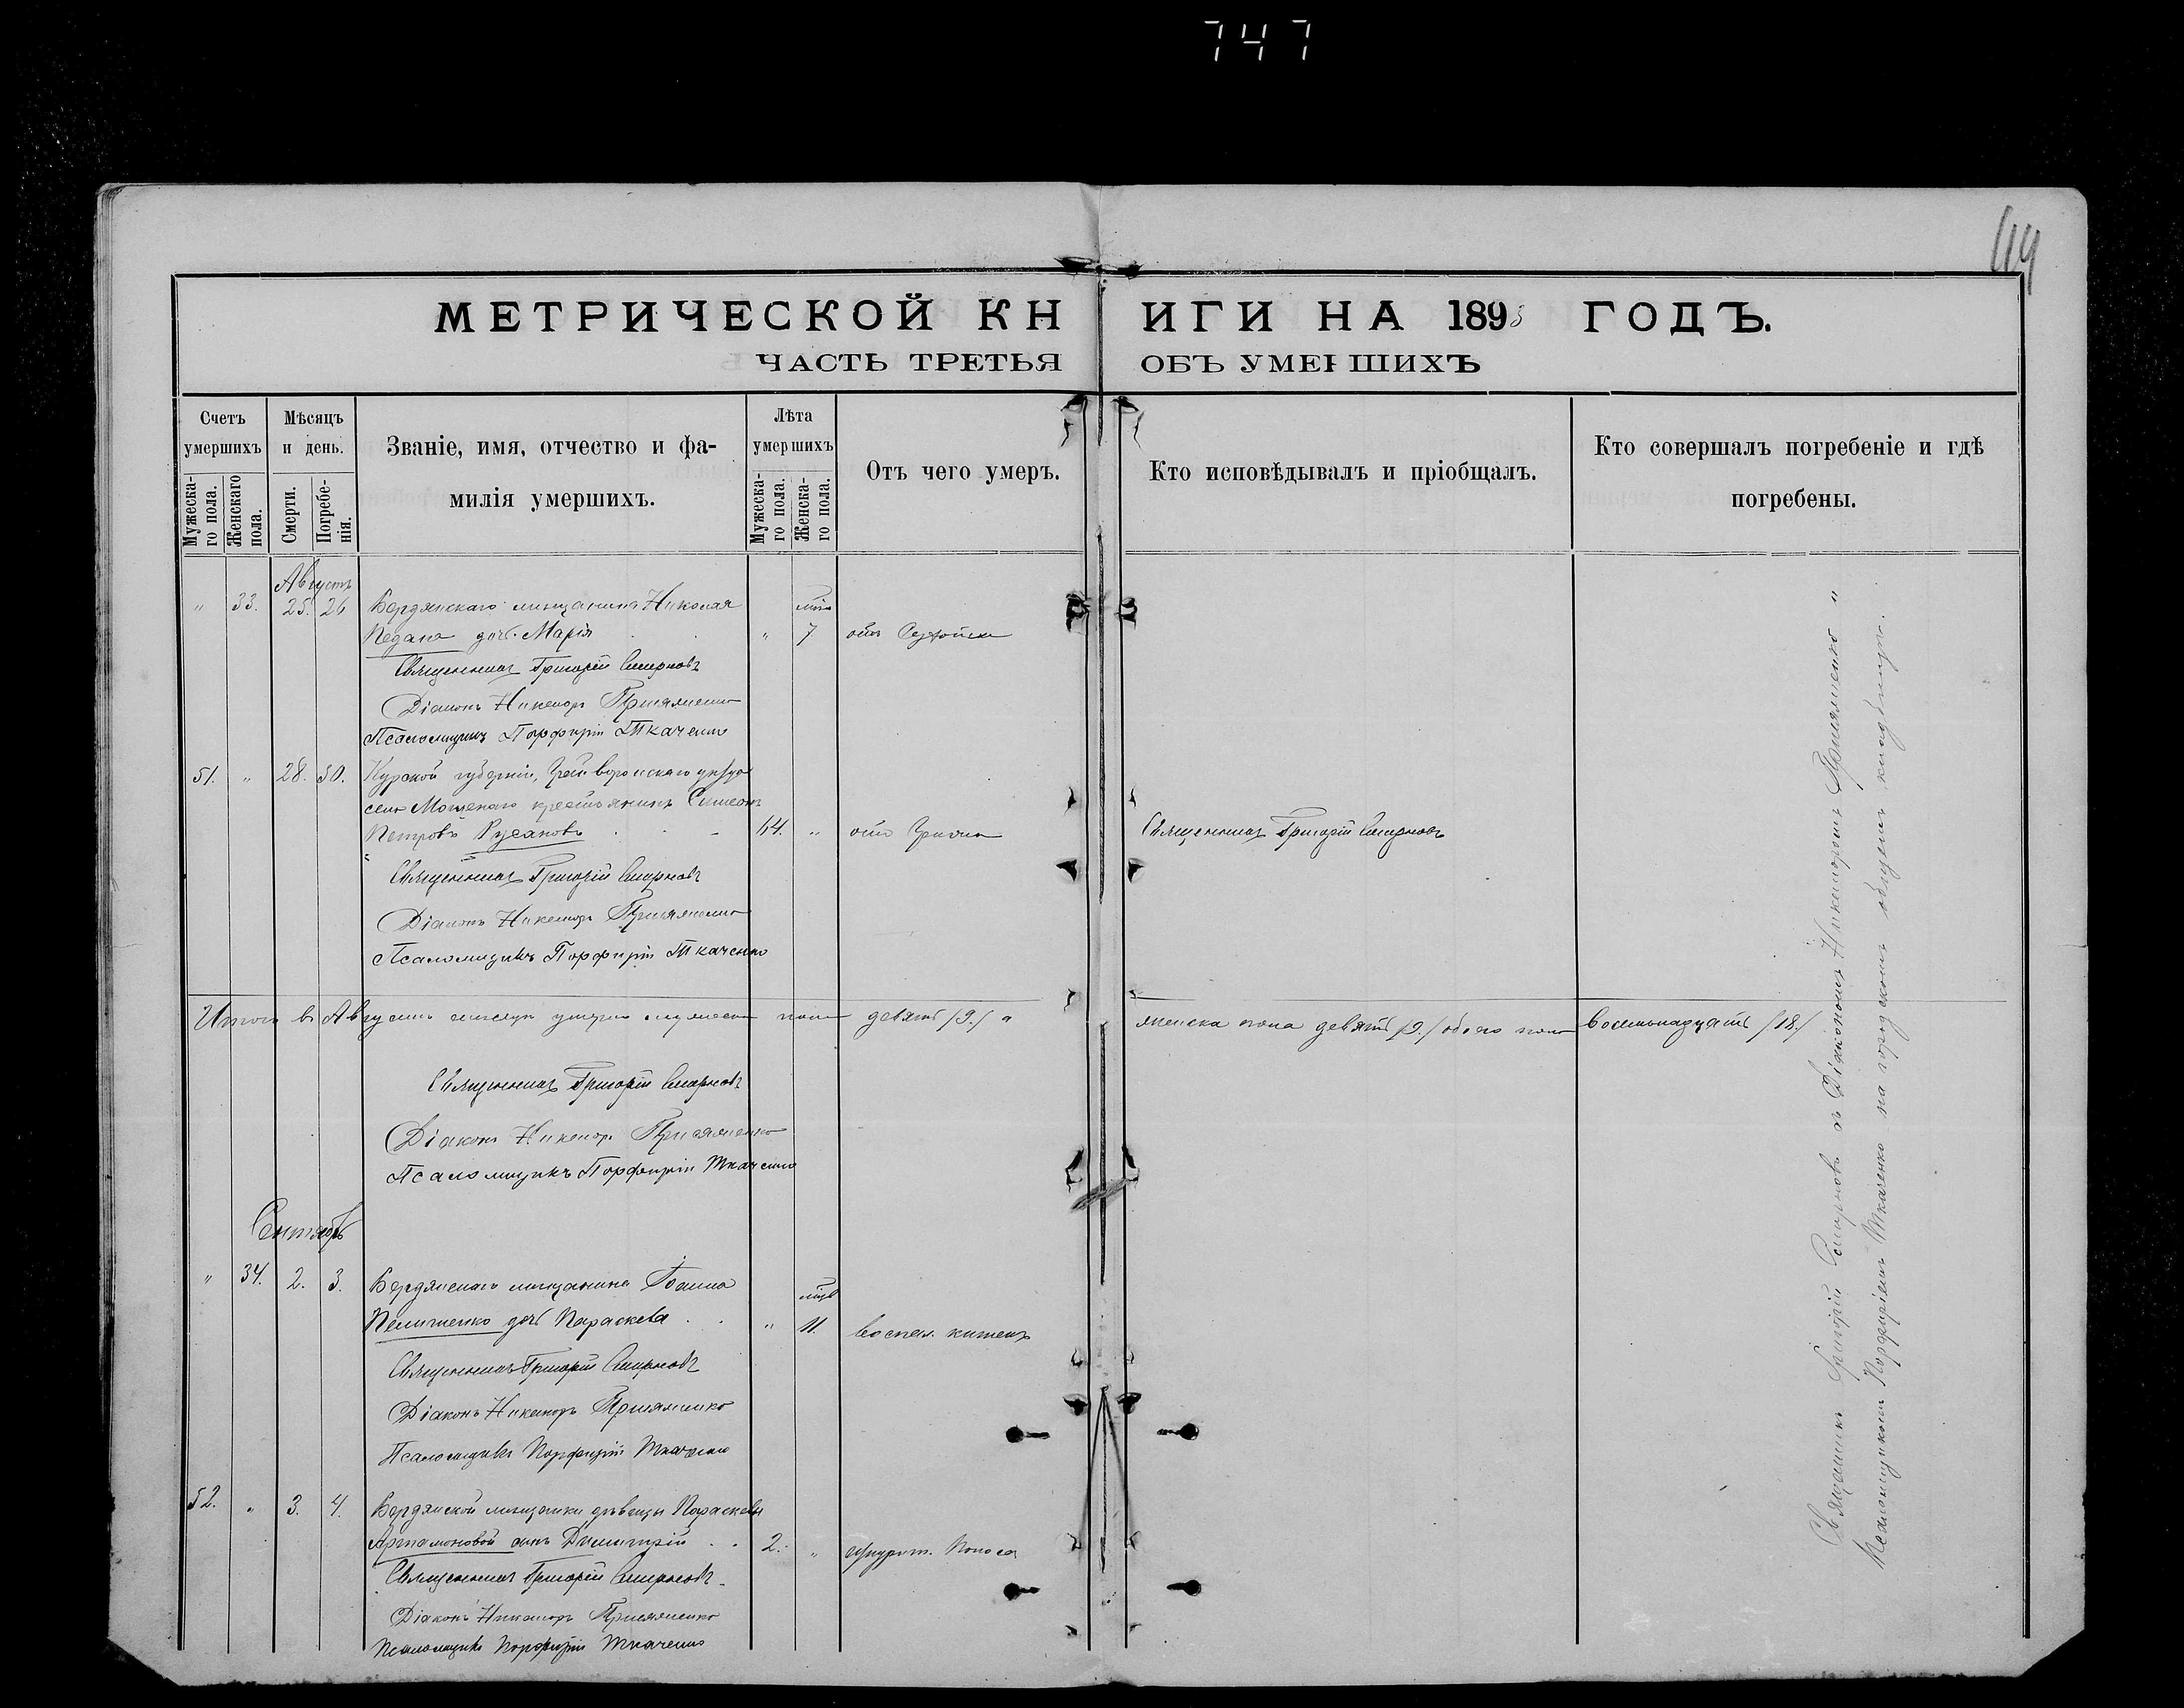 747
МЕТРИЧЕСКОЙ КНИГИ НА 1893 ГОДЪ.
ЧАСТЬ ТРЕТЬЯ ОБЪ УМЕРШИХЪ
Счетъ умершихъ
Мужескаго пола.
Женскаго пола.
Мѣсяцъ и день.
Смерти.
Погребенія.
Званіе, имя, отчество и фа-
милія умершихъ.
Лѣта умершихъ
Мужескаго пола.
Женскаго пола.
Отъ чего умеръ.
Кто исповѣдывалъ и пріобщалъ.
Кто совершалъ погребеніе и гдѣ
погребены.
Августъ
" 33. 25. 26 Бердянскаго мещанина Николая
Педана дочь Марія " 7 отъ
Священникъ Григорій Смирновъ
Діаконъ Никаноръ Присяженко
Псаломщикъ Порфирій Ткаченко
51. " 28. 30. Курской губерніи, Грайворонскаго уѣзда
села Мощенаго крестьянинъ Симеонъ
Петровъ Русановъ 64. " отъ Священникъ Григорій Смирновъ
Священникъ Григорій Смирновъ
Діаконъ Никаноръ Присяженко
Псаломщикъ Порфирій Ткаченко
Итого въ Августѣ мѣсяцѣ умерло мужеска пола девять /9./ а женска пола девять /9./ обоего пола восемьнадцать /18./
Священникъ Григорій Смирновъ
Діаконъ Никаноръ Присяженко
Псаломщикъ Порфирій Ткаченко
Сентябрь
" 34. 2. 3. Бердянскаго мещанина Іоанна
дочь Параскева " 11. воспал. кишекъ
Священникъ Григорій Смирновъ
Діаконъ Никаноръ Присяженко
Псаломщикъ Порфирій Ткаченко
52. " 3. 4. Бердянской мещанки дѣвицы Параскевы
Артамоновой сынъ Димитрій 2. " поноса
Священникъ Григорій Смирновъ
Діаконъ Никаноръ Присяженко
Псаломщикъ Порфирій Ткаченко
Священникъ Григорій Смирновъ съ Діакономъ Никаноромъ Присяженко "
Псаломщикомъ Порфиріемъ Ткаченко на городскомъ общемъ кладбищѣ.